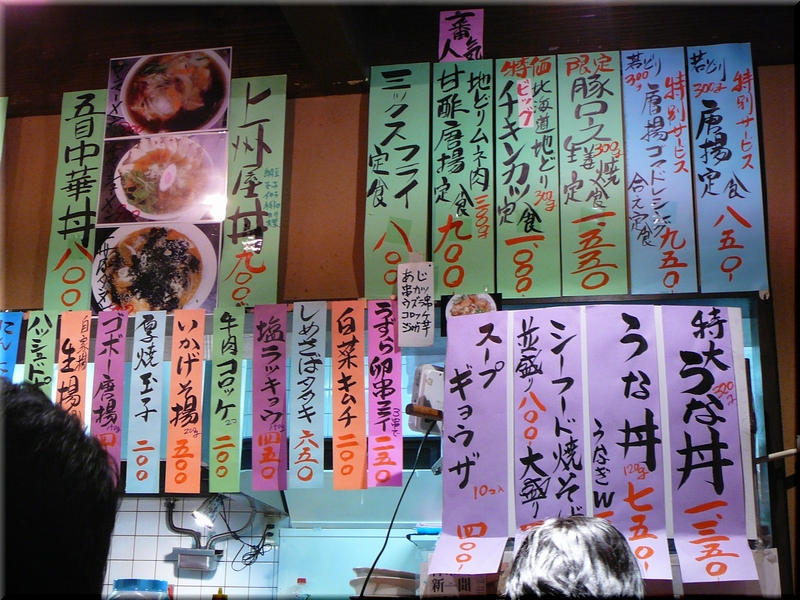 一番人気
特別サービス
若どり300g
唐揚定食
八五〇
特別サービス
若どり300g
唐揚ゴマドレシング
合え定食
九五〇
限定
豚ロース300g
生姜焼定食
一、五五〇
特価
ビッグ
北海道地どり300g
チキンカツ定食
一、〇〇〇
地どりムネ肉300g
甘酢唐揚定食
九〇〇
ミックスフライ定食
八〇〇
上州屋丼
九〇〇
五目中華丼
八〇〇
あじ
串カツ
ウズラ串
コロッケ
特大
うな丼
300g
一、三五〇
うな丼
120g
七五〇
うなぎW
シーフード焼そば
並盛り八〇〇大盛り
スープ
ギョウザ
10コ入
四〇〇
うずら卵串フライ
3串で
二五〇
白菜キムチ
二〇〇
しめさばタタキ
六五〇
塩ラッキョウ
四五〇
牛肉コロッケ
二〇〇
いかげそ揚
五〇〇
厚焼玉子
二〇〇
ゴボー唐揚
四
自家製
生揚
ハッシュドポ
にんこ